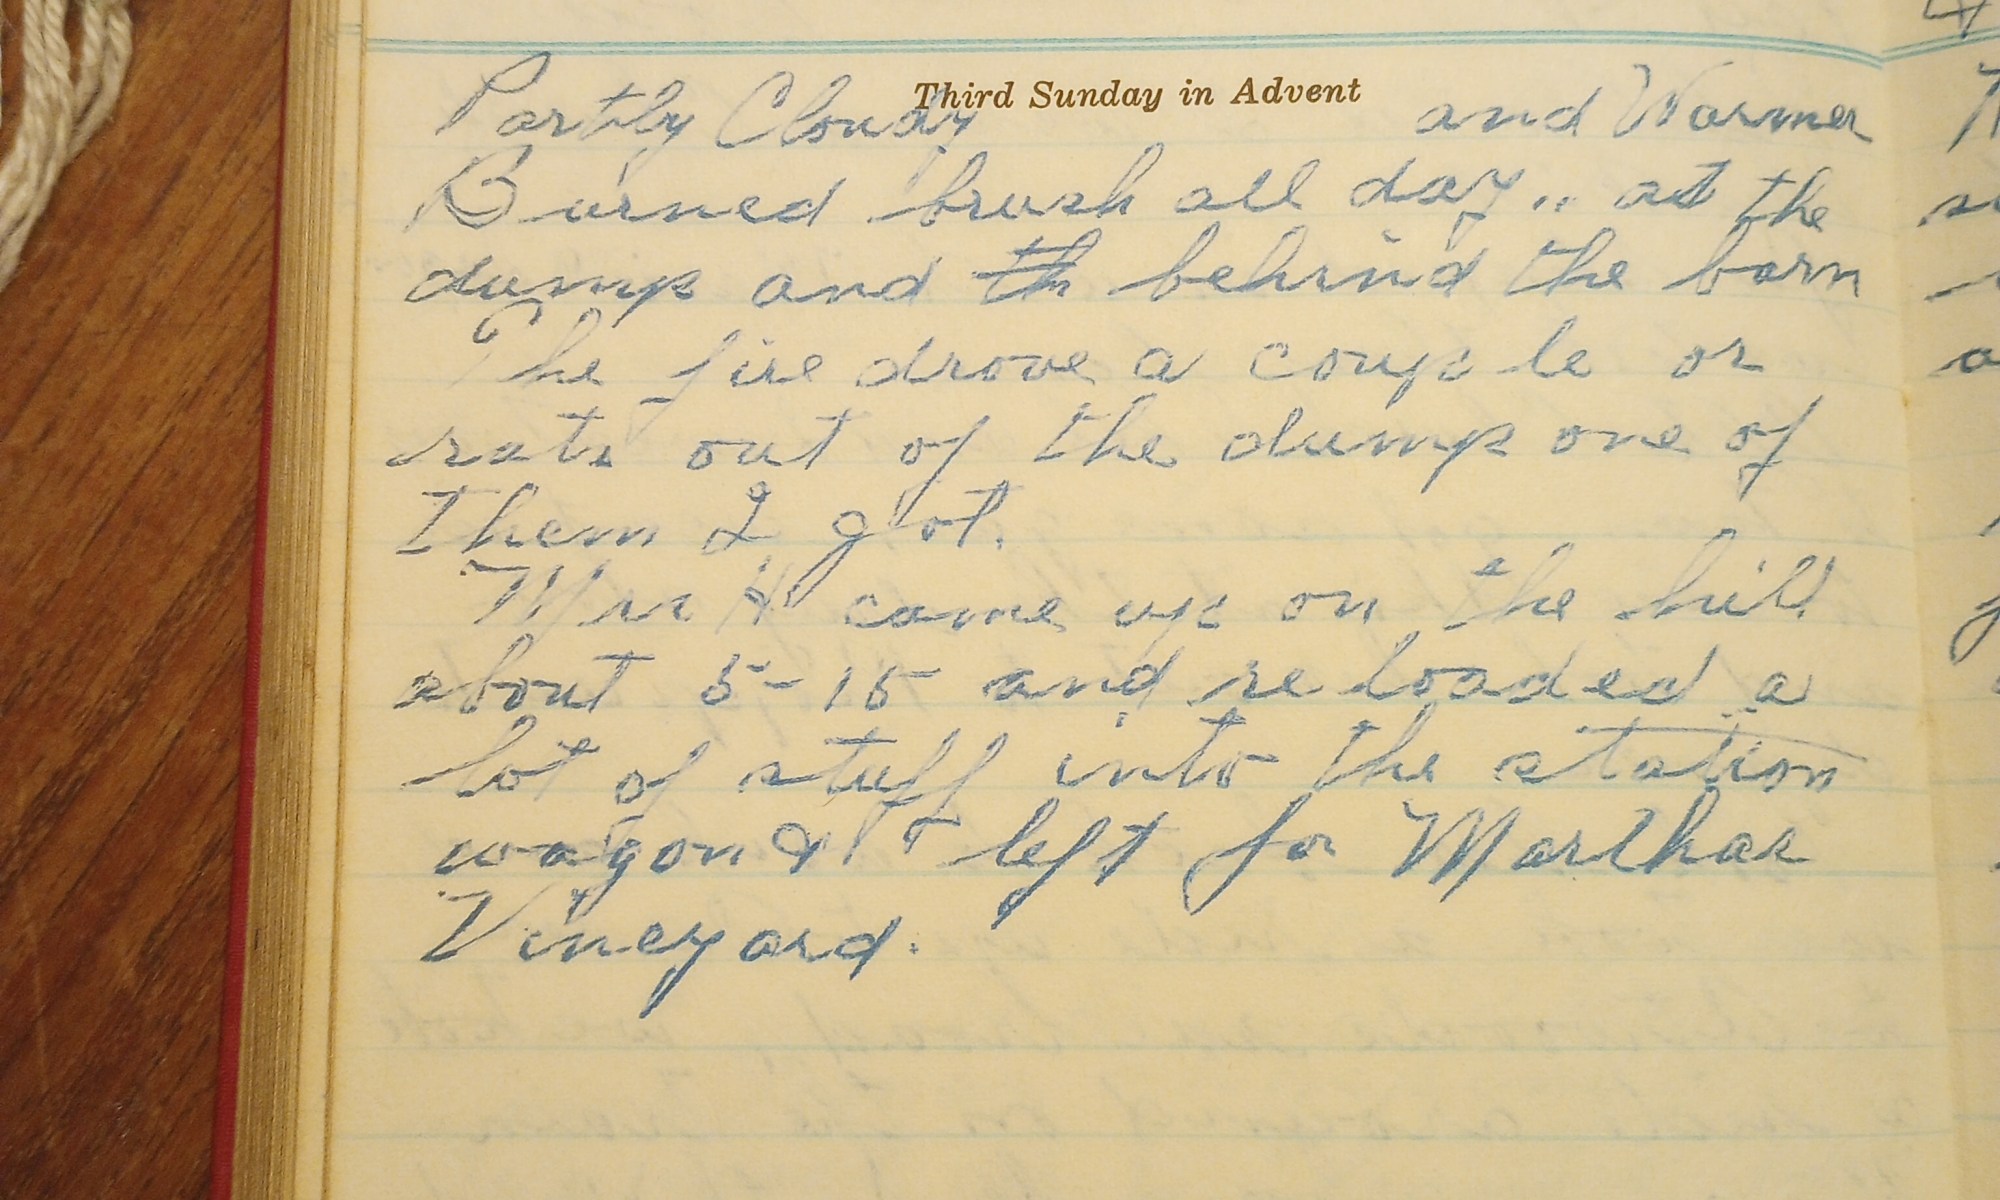 Third Sunday in Advent
Partly Cloudy and Warmer
Burned brush all day.. at the
dump and th behind the barn
The fire drove a couple or
rats out of the dump one of
them I got.
Mrs H came up on the hill
about 5-15 and re loaded a
lot of stuff into the station
wagon & left for Marthas
Vineyard.